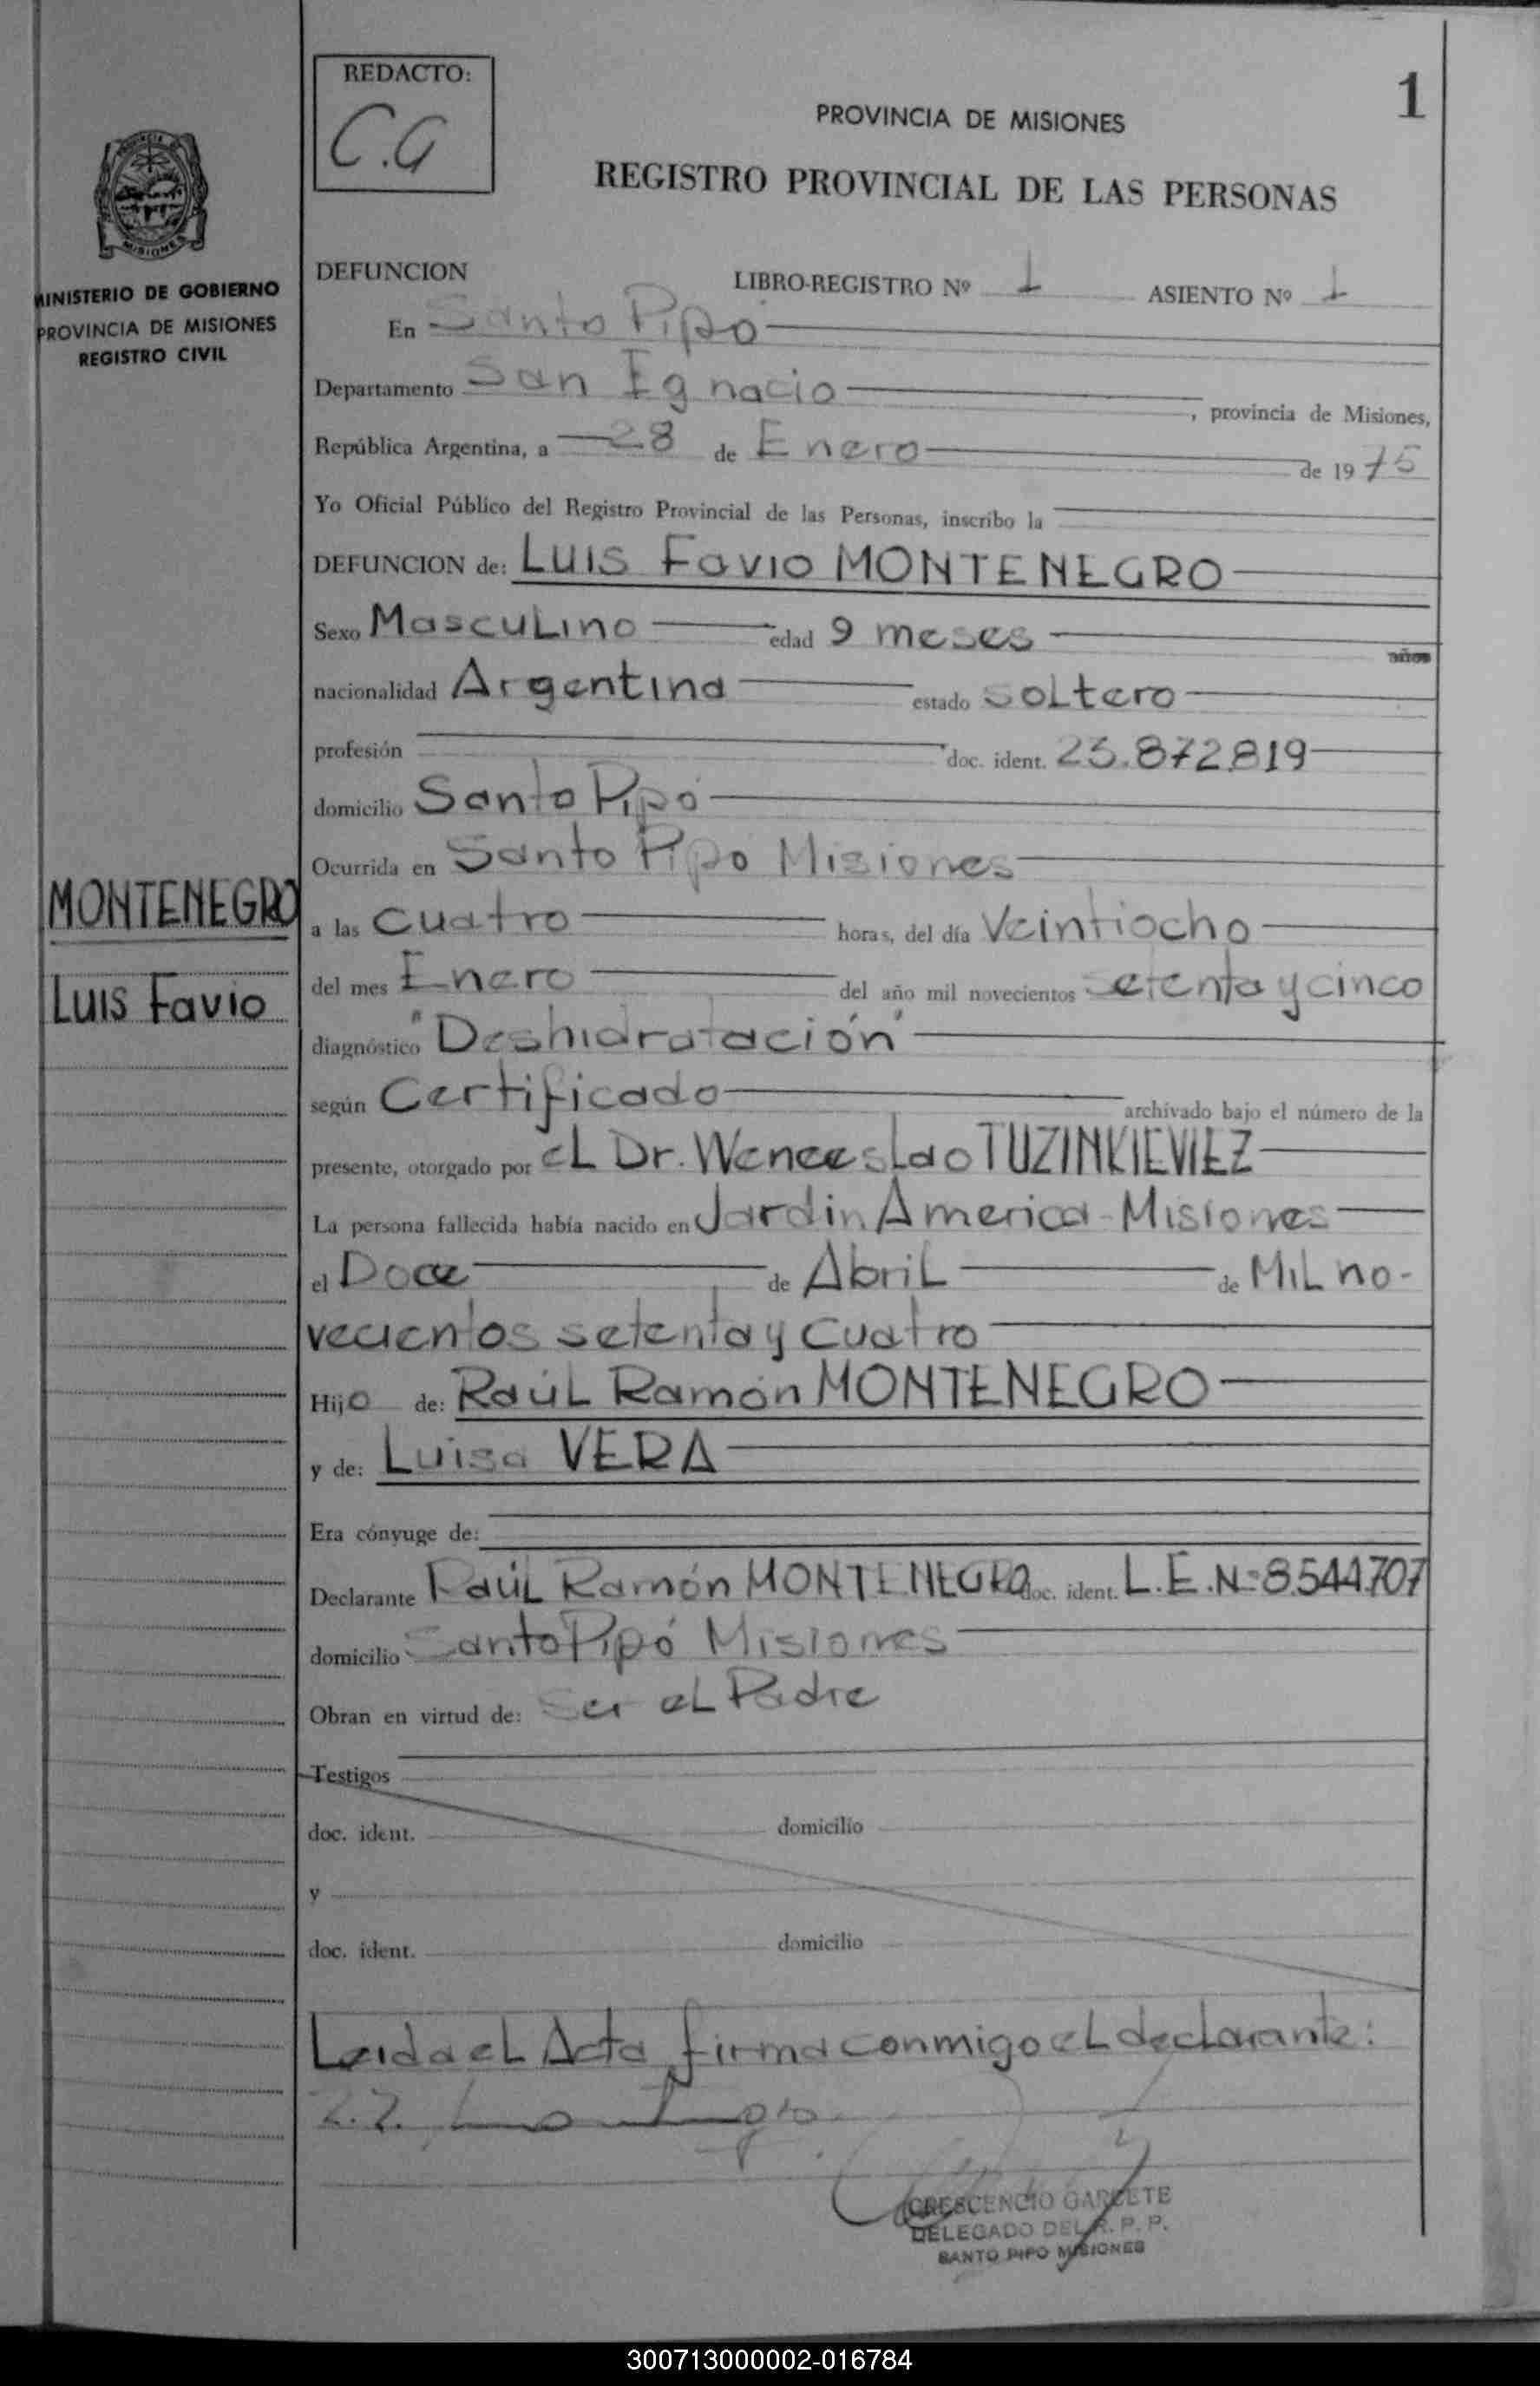 REDACTO:
C.G
1
PROVINCIA DE MISIONES
REGISTRO PROVINCIAL DE LAS PERSONAS
MISIONES
MINISTERIO DE GOBIERNO
PROVINCIA DE MISIONES
REGISTRO CIVIL
DEFUNCION LIBRO-REGISTRO Nº 1 ASIENTO Nº 1
En Santo Pipó
Departamento San Ignacio, provincia de Misiones,
República Argentina, a 28 de Enero de 1975
Yo Oficial Público del Registro Provincial de las Personas, inscribo la
DEFUNCION de: LUIS Favio MONTENEGRO
Sexo Masculino edad 9 meses años
nacionalidad Argentina estado soltero
profesión doc. ident. 23.872.819
domicilio Santo Pipó
Ocurrida en Santo Pipo Misiones
MONTENEGRO
Luis Favio
a las cuatro horas, del día Veintiocho
del mes Enero del año mil novecientos setenta y cinco
diagnóstico "Deshidratación"
según Certificado archivado bajo el número de la
presente, otorgado por el Dr. Wenceslao TUZINKIEVIEZ
La persona fallecida había nacido en Jardin America - Misiones
el Doce de Abril de Mil no-
vecientos setenta y cuatro
Hijo de: Raúl Ramón MONTENEGRO
y de: Luisa VERA
Era cónyuge de:
Declarante Raúl Ramón MONTENEGRO doc. ident. L.E.Nº 8.544.707
domicilio Santo Pipó Misiones
Obran en virtud de: Ser el Padre
Testigos
doc. ident. domicilio
y
doc. ident. domicilio
Leida el Acta firma conmigo el declarante:
CRESCENCIO GARCETE
DELEGADO DEL R. P. P.
SANTO PIPO MISIONES
300713000002-016784